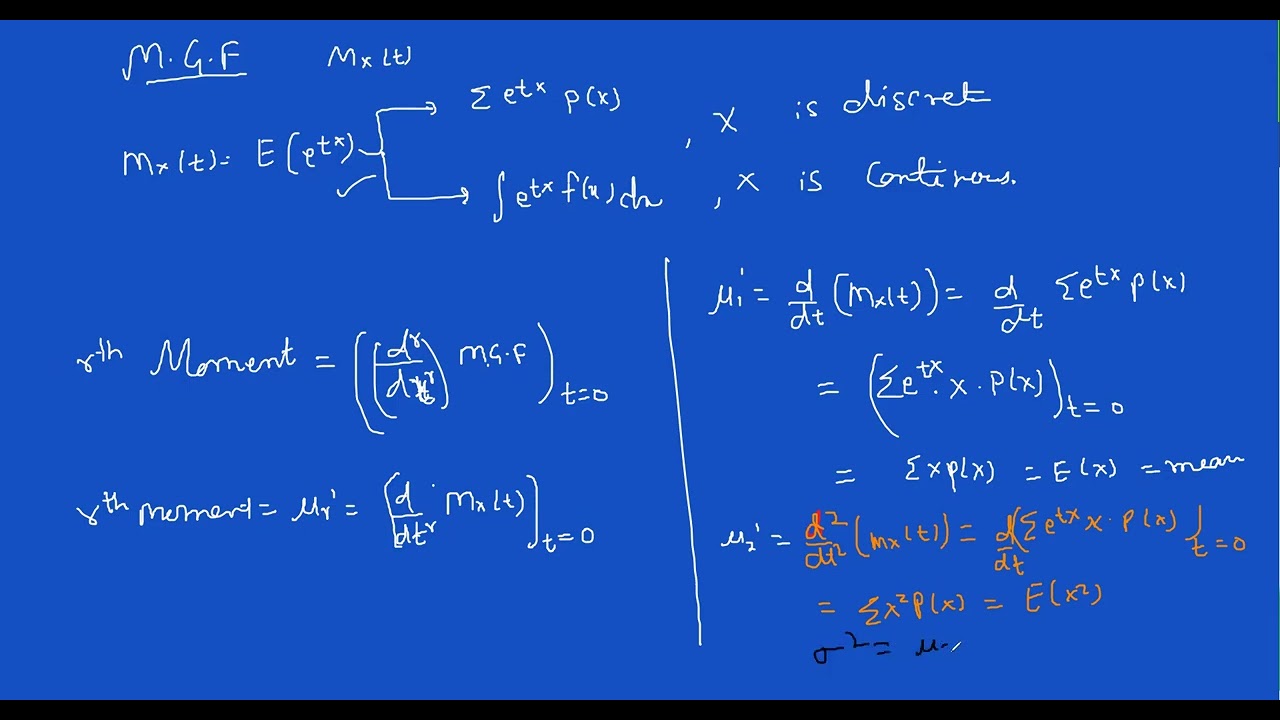 M.G.F Mx(t)
Mx(t) = E(e^tx)
Σ e^tx p(x) , X is discret
∫ e^tx f(x) dx , X is continous.
rth Moment = ((d^r/dt^r) M.G.F)t=0
rth moment = μr' = [d/dt^r Mx(t)]t=0
μ1' = d/dt (Mx(t)) = d/dt Σe^tx P(x)
= (Σe^tx . x . P(x))t=0
= Σxp(x) = E(x) = mean
μ2' = d²/dt² (Mx(t)) = d/dt (Σe^tx x . P(x))t=0
= Σx²P(x) = E(x²)
σ² = μ